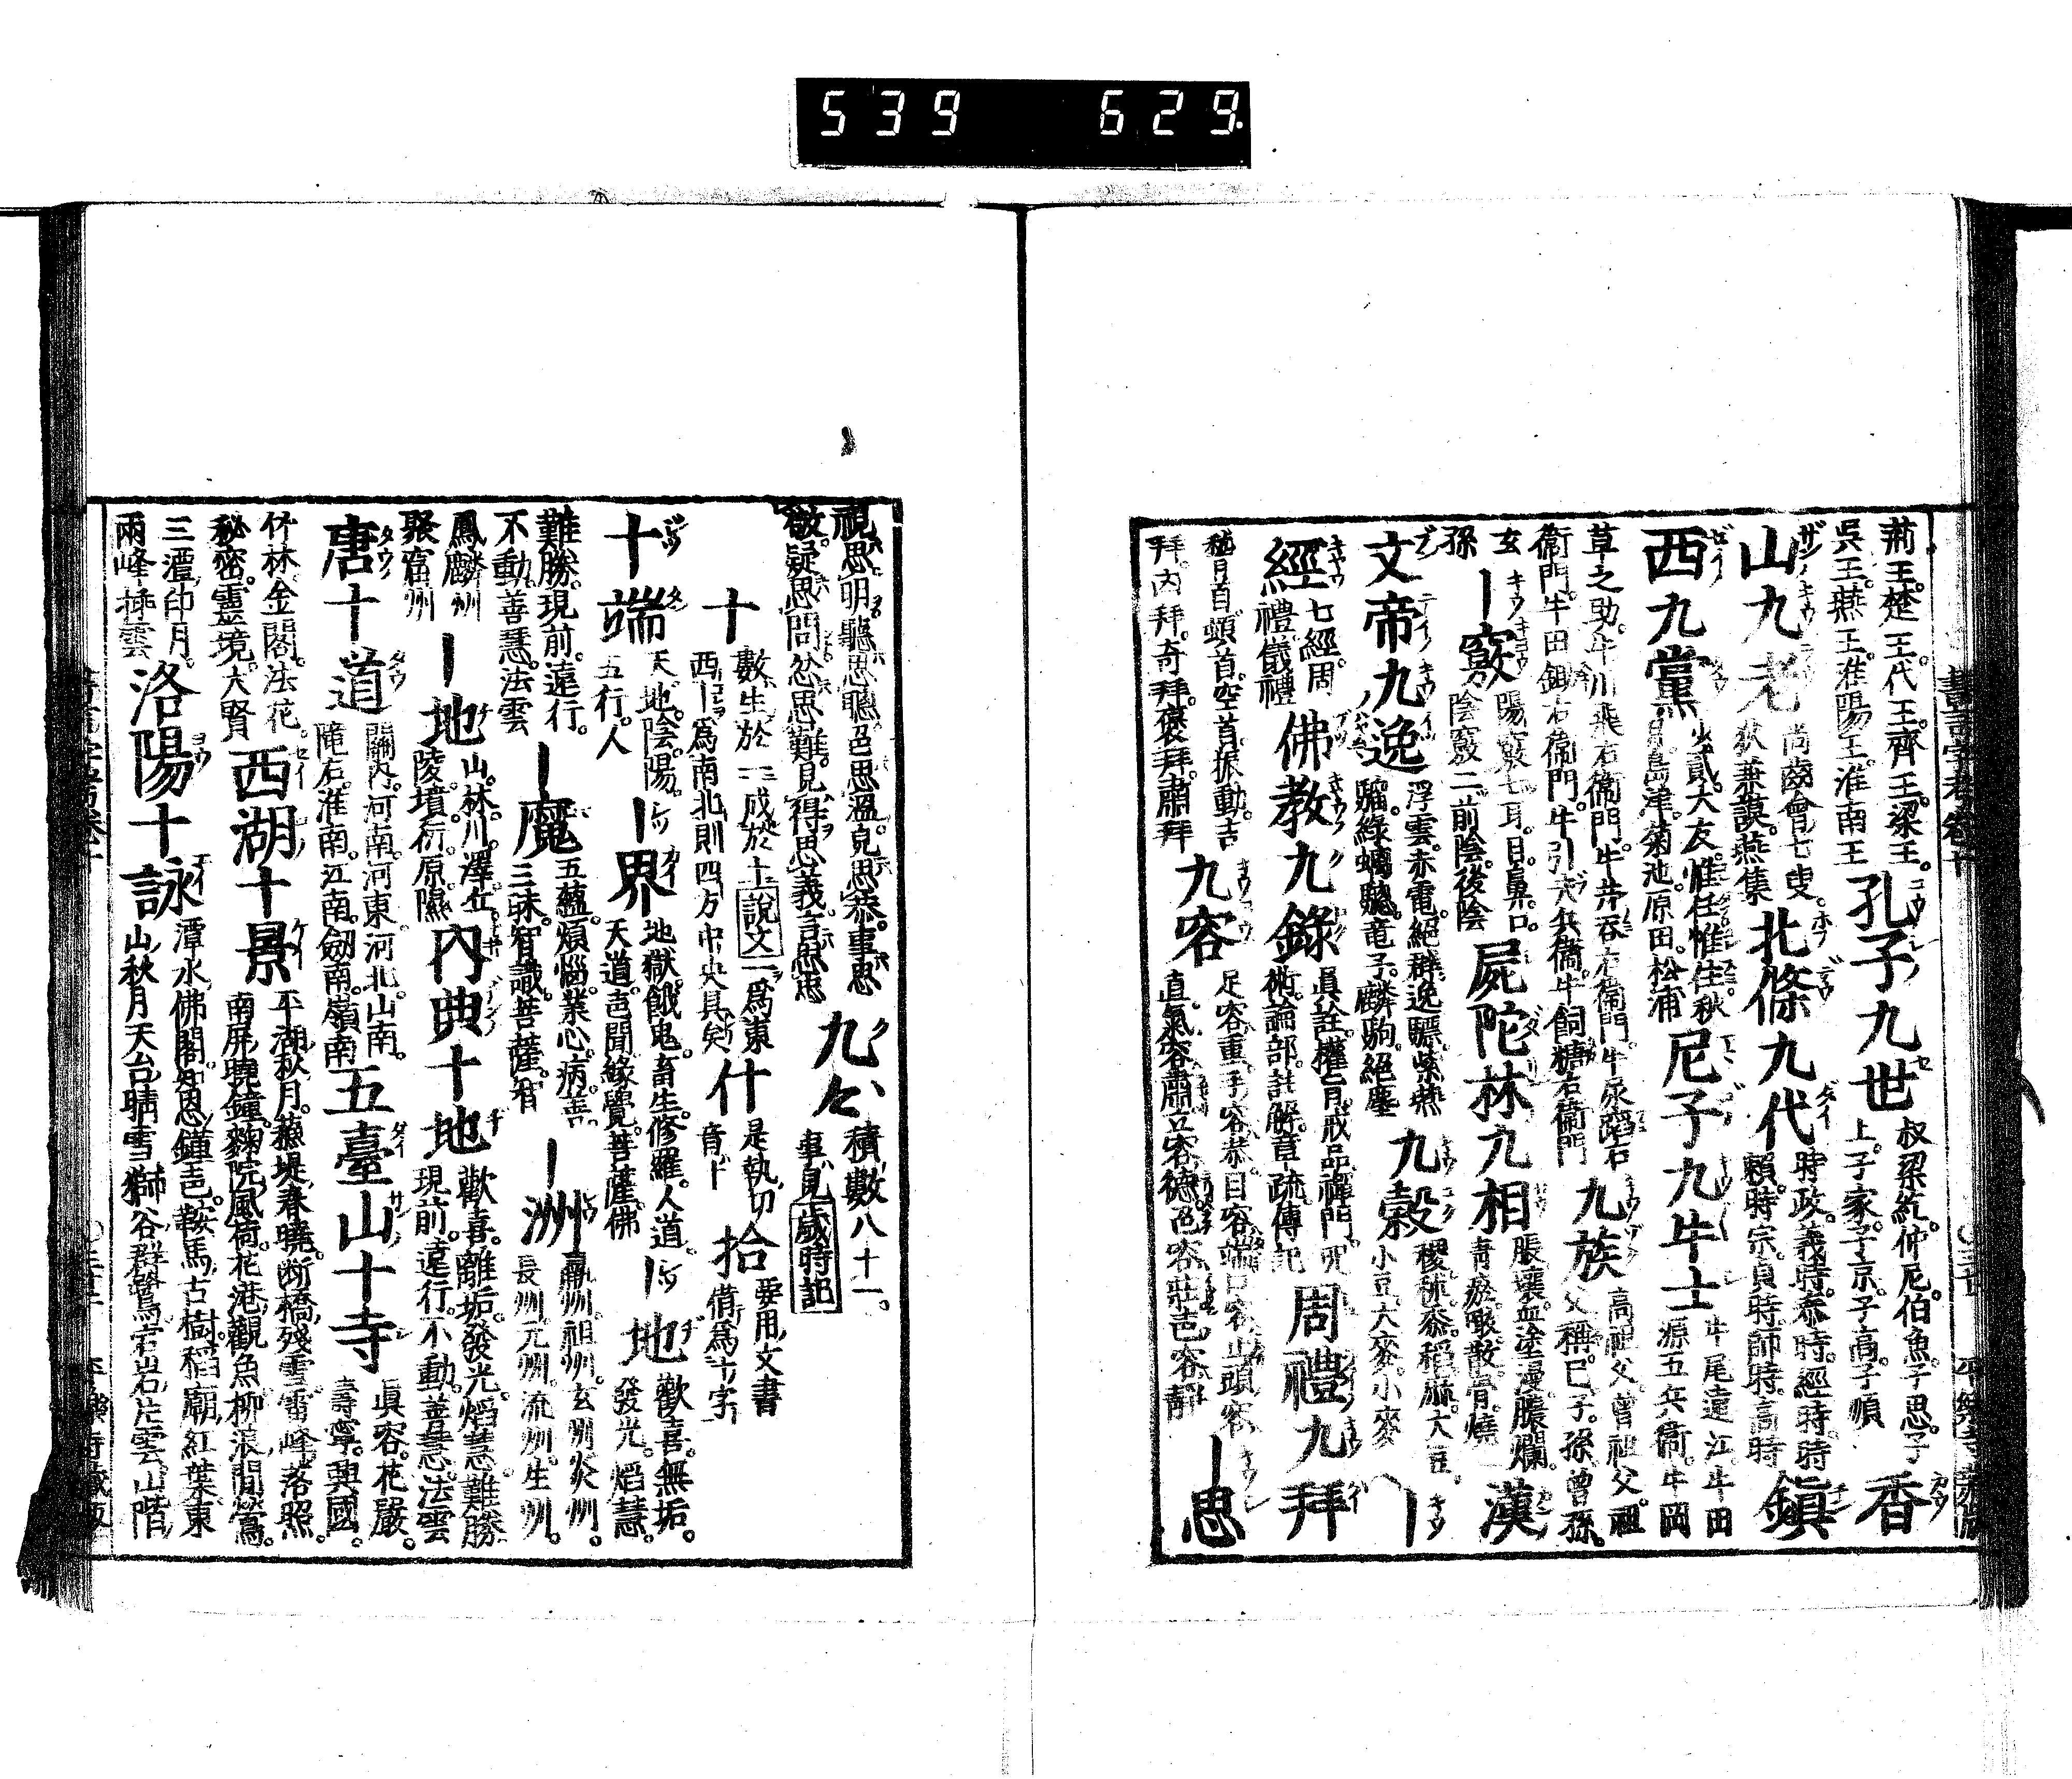 539 629
荊王。楚王。代王。齊王。梁王。
吳王。燕王。淮陽王。淮南王
孔子九世
叔梁紇。仲尼。伯魚。子思。子
上。子家。子京。子高。子順
香
山九老
尚齒會七叟。
狄兼謨。燕集
北條九代
時政。義時。泰時。經時。時
賴。時宗。貞時。師時。高時
鎭
西九黨
少貳。大友。惟任。惟住。秋
月。島津。菊池。原田。松浦
尼子九牛士
牛尾遠江。牛田
源五兵衞。牛岡
草之助。牛川飛右衞門。牛井吞右衞門。牛尿踏右
衞門。牛田鋤右衞門。牛引六兵衞。牛飼糖右衞門
九族
高祖父。曾祖父。祖
父。稱。己。子。孫。曾孫。
玄
孫
｜竅
陽竅七耳。目。鼻。口。
陰竅二前陰。後陰
屍陀林九相
脹。壞。血塗。漫。膿爛。
靑瘀。噉。散。骨。燒
漢
文帝九逸
浮雲。赤電。絕群。逸驃。紫燕
騮。綠螭驄。竜子。麟駒。絕塵
九穀
稷。秫。黍。稻。麻。大豆。
小豆。大麥。小麥
｜
經
七經。周
禮。儀禮
佛教九錄
眞詮。權旨。戒品。禪門。呪
術。論部。註解。章疏。傳記
周禮九拜
稽首。頓首。空首。振動。吉
拜。凶拜。奇拜。褒拜。肅拜
九容
足容重。手容恭。目容端。口容止。頭容
直。氣容肅。立容德。色容莊。声容靜
｜思
視思明。聽思聰。色思溫。皃思恭。事思
敬。疑思問。忿思難。見得思義。言思忠
九々
積數八十一。
事見歲時記
十
數生於一成於十。說文一爲東
西｜爲南北則四方中央具矣
什
是執切
音十
拾
要用文書
借爲十字
十端
天。地。陰。陽。
五行。人
｜界
地獄。餓鬼。畜生。修羅。人道
天道。声聞。緣覺。菩薩。佛
｜地
歡喜。無垢。
發光。焰慧。
難勝。現前。遠行。
不動。善慧。法雲
｜魔
五蘊。煩惱。業。心。病。善
三昧。智識。菩薩。智
｜洲
瀛洲。祖洲。玄洲。炎洲。
長洲。元洲。流洲。生洲。
鳳麟洲
聚窟洲
｜地
山。林。川。澤。丘。
陵。墳。衍。原。隰
內典十地
歡喜。離垢。發光。焰慧。難勝
現前。遠行。不動。善慧。法雲
唐十道
關內。河南。河東。河北。山南。
隴右。淮南。江南。劔南。嶺南
五臺山十寺
眞容。花嚴。
壽寧。興國。
竹林。金閣。法花。
秘密。靈境。大賢
西湖十景
平湖秋月。蘇堤春曉。斷橋殘雪。雷峰落照。
南屏曉鐘。麴院風荷。花港觀魚。柳浪聞鶯。
三潭印月。
兩峰挿雲
洛陽十詠
潭水佛閣。 鐘声。鞍馬古樹。稻 紅葉。東
山秋月。天台晴雪。 谷群鷺。岩片雲。山階